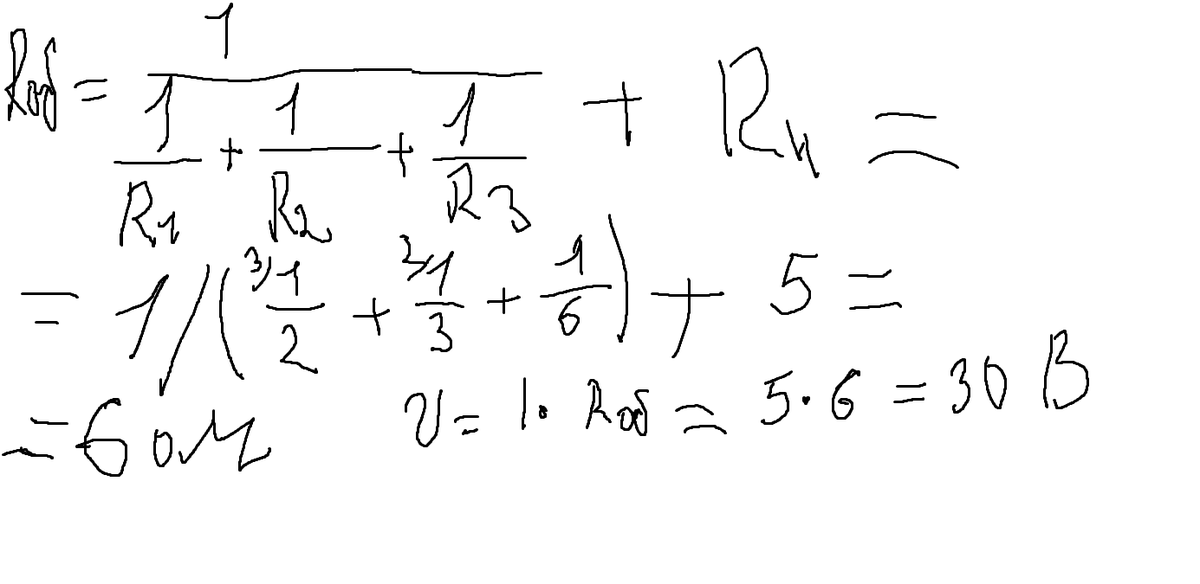 Rоб = 1 / (1/R1 + 1/R2 + 1/R3) + R4 =
= 1/( ³⁾1/2 + ²⁾1/3 + 1/6 ) + 5 =
= 6 ом U = I · Rоб = 5 · 6 = 30 В